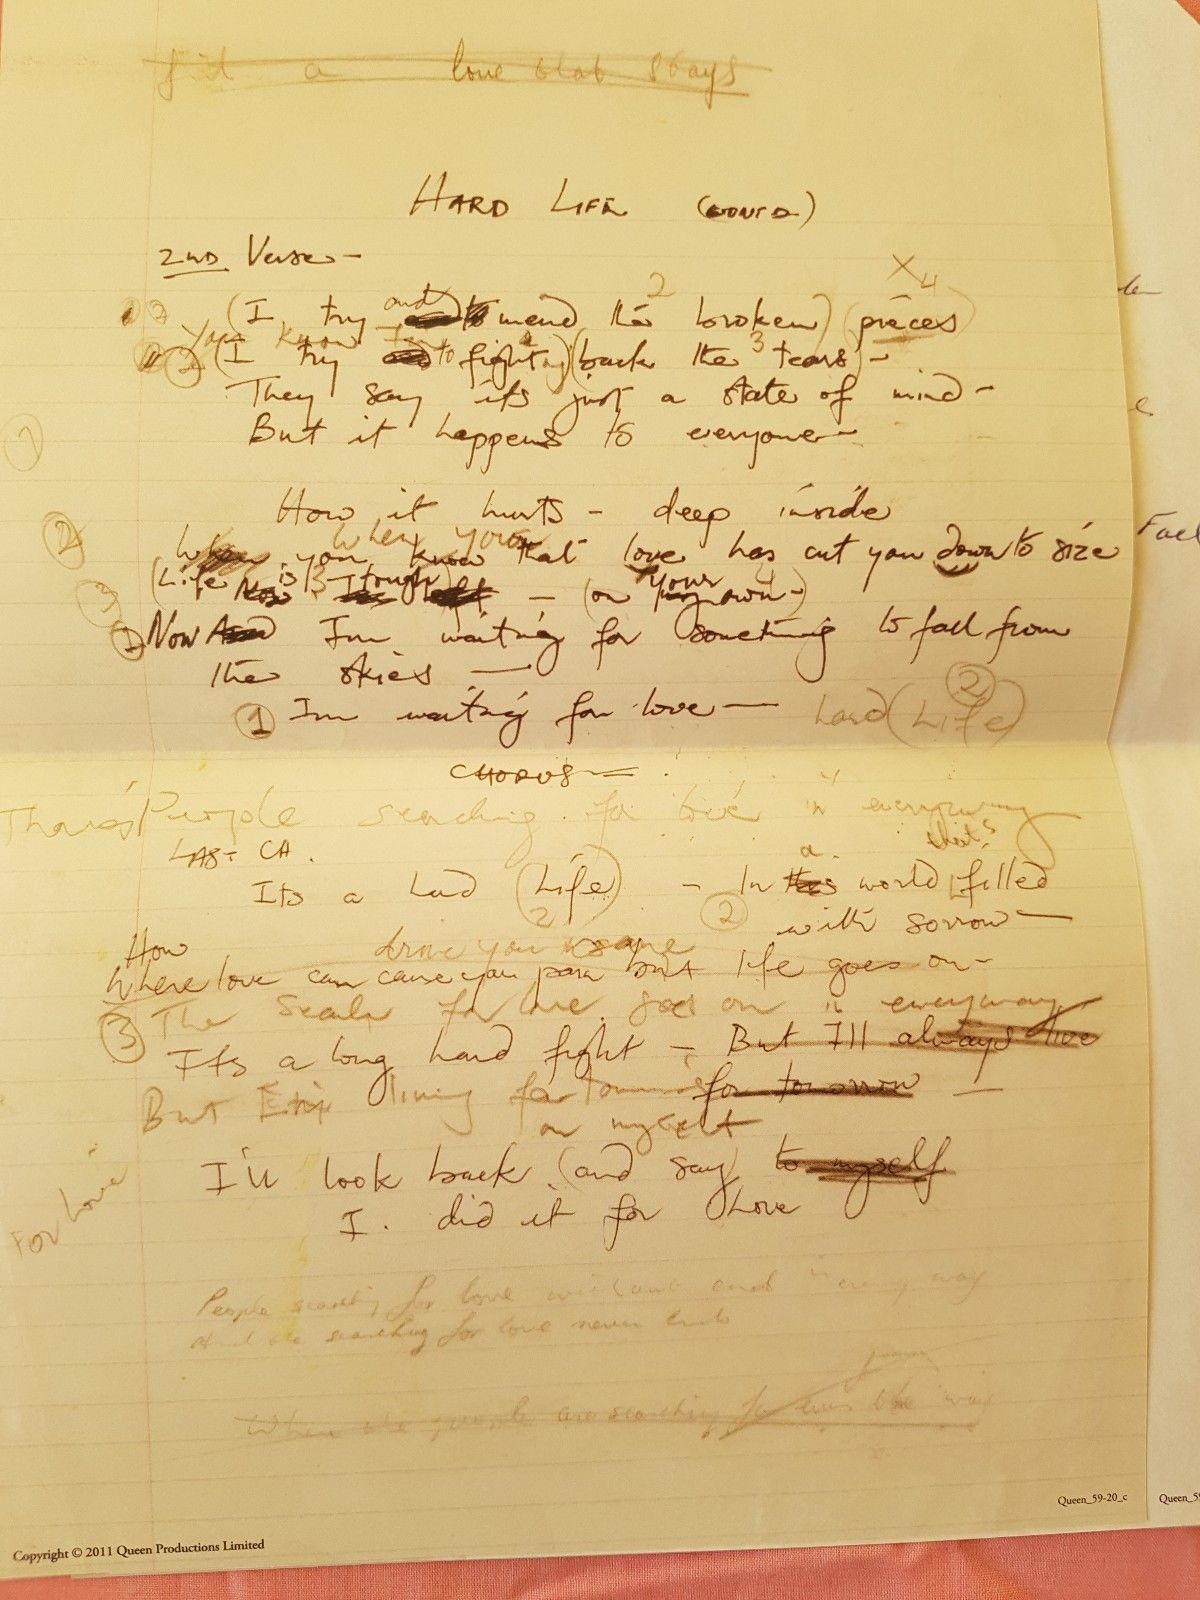 a love that stays
HARD LIFE (CONTD)
2ND Verse -
X 4
2
(I try and to mend the broken) (pieces)
You know I
2 (I try to fighting) (back the 3 tears) -
They say its just a state of mind -
But it happens to everyone -
1
How it hurts - deep inside
2
When your
When you know that love has cut you down to size
3
(Life is 3 tough) - (on your 4 own -)
1 Now And Im waiting for something to fall from
the skies -
1 Im waiting for love - hard (Life) 2
CHORUS =
There's People searching for love in everyway
LAST CH.
a that's
Its a hard (Life) - In this world filled
2 2 with sorrow -
How drive you insane
Where love can cause you pain but life goes on -
3 The search for love goes on in everyway
Its a long hard fight - But I'll always live
for tomorrow -
But living for tomorrow
on myself
I'll look back (and say) to myself
I. did it for Love
For Love
People searching for love without end in every way
And the searching for love never ends
Where the people are searching for
Queen_59-20_c
Copyright © 2011 Queen Productions Limited